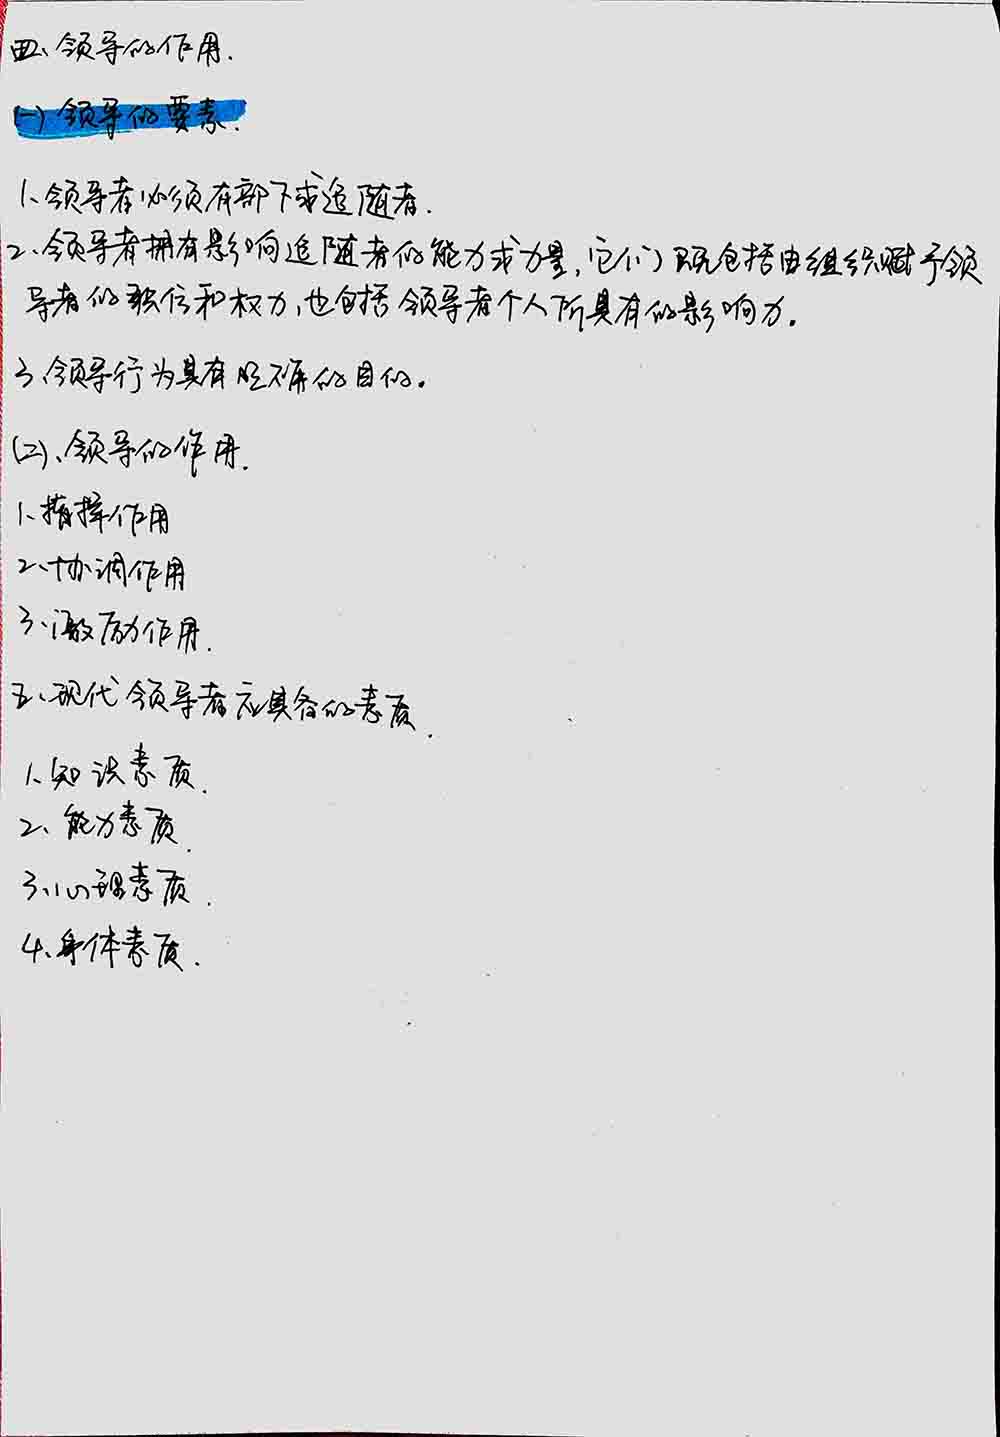 四、领导的作用.
(一)领导的要素.
1、领导者必须有部下或追随者.
2、领导者拥有影响追随者的能力或力量,它们既包括由组织赋予领
导者的职位和权力,也包括领导者个人所具有的影响力。
3、领导行为具有明确的目的。
(二)、领导的作用.
1、指挥作用
2、协调作用
3、激励作用.
五、现代领导者应具备的素质.
1、知识素质.
2、能力素质.
3、心理素质.
4、身体素质.